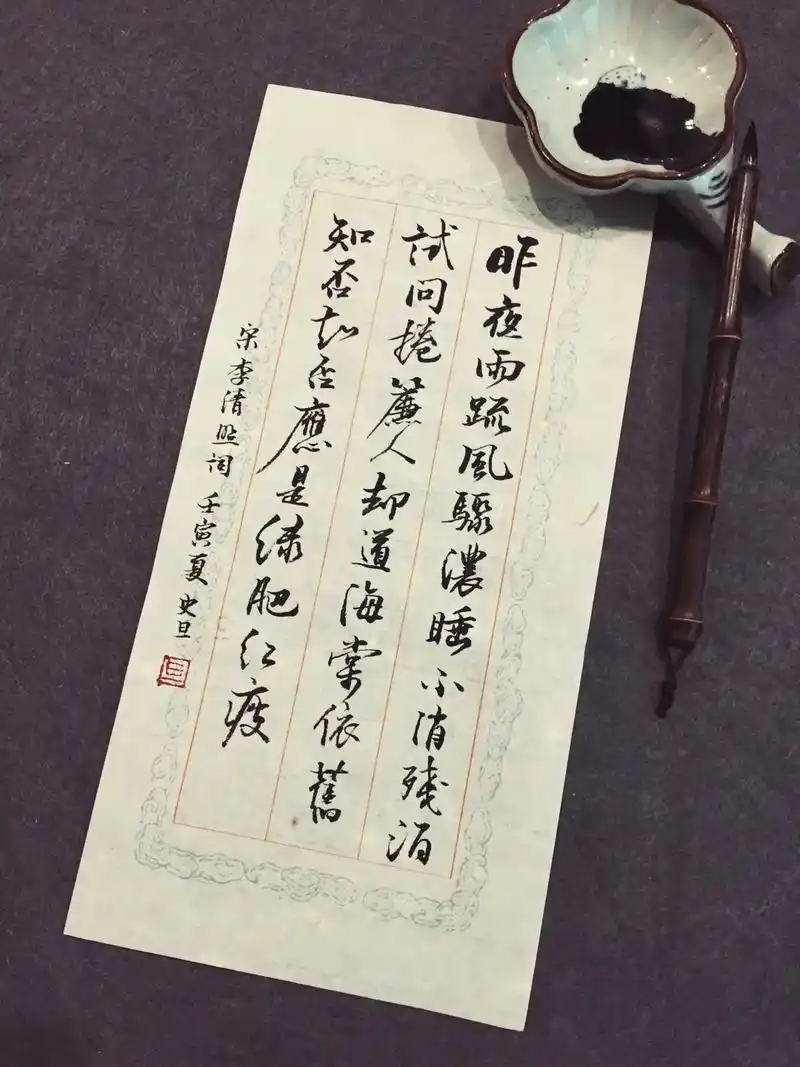 昨夜雨疏風驟濃睡不消殘酒
試問捲簾人却道海棠依舊
知否知否應是綠肥紅瘦
宋李清照詞壬寅夏史旦